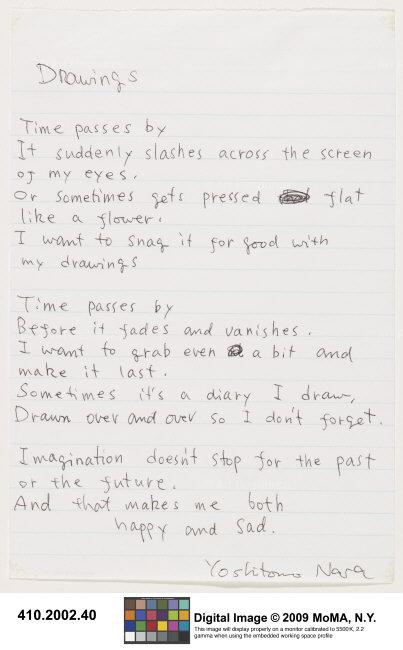 Drawings
Time passes by
It suddenly slashes across the screen
of my eyes.
Or sometimes gets pressed flat
like a flower.
I want to snag it for good with
my drawings
Time passes by
Before it fades and vanishes.
I want to grab even a bit and
make it last.
Sometimes it's a diary I draw,
Drawn over and over so I don't forget.
Imagination doesn't stop for the past
or the future.
And that makes me both
happy and sad.
Yoshitomo Nara
410.2002.40
Digital Image © 2009 MoMA, N.Y.
This image will display properly on a monitor calibrated to 5500K, 2.2
gamma when using the embedded working space profile